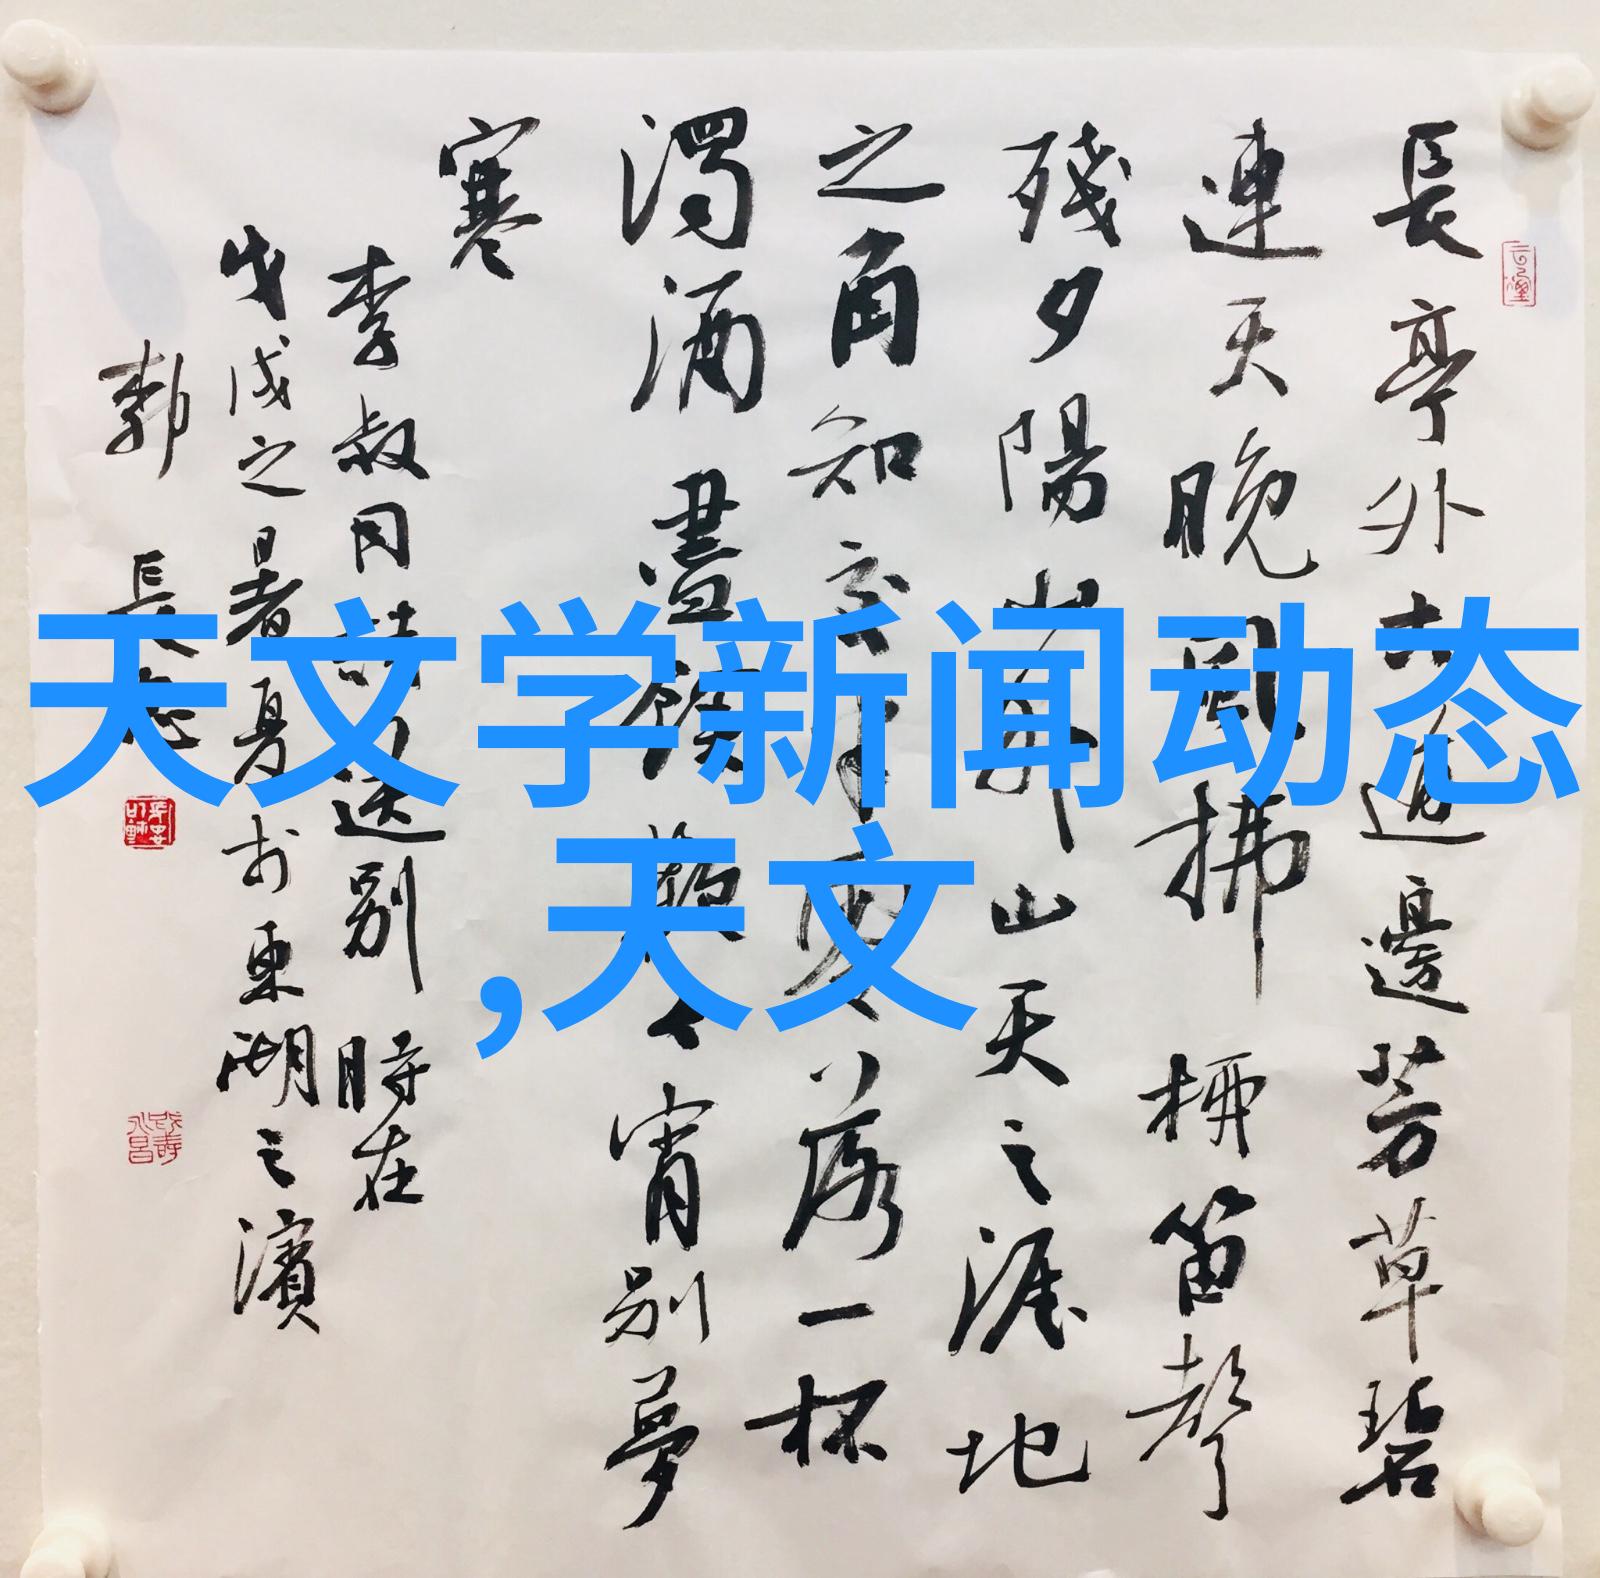 天文学新闻动态
,天文
長亭外古道邊芳草碧
連天晚風拂柳笛聲
殘夕陽山外山天之涯地
之角知交半零落一杯
濁酒盡餘歡今宵别夢
寒
李叔同詩送别 時在
戊戌之暑夏於東湖之濱
郭長志